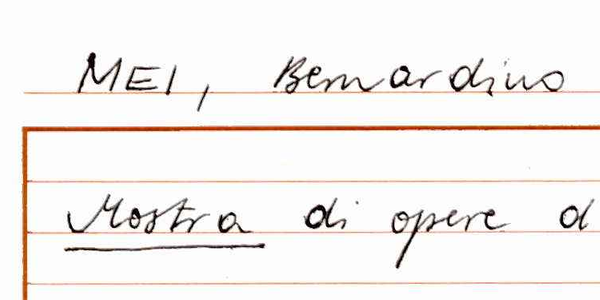 MEI, Bernardino
Mostra di opere d